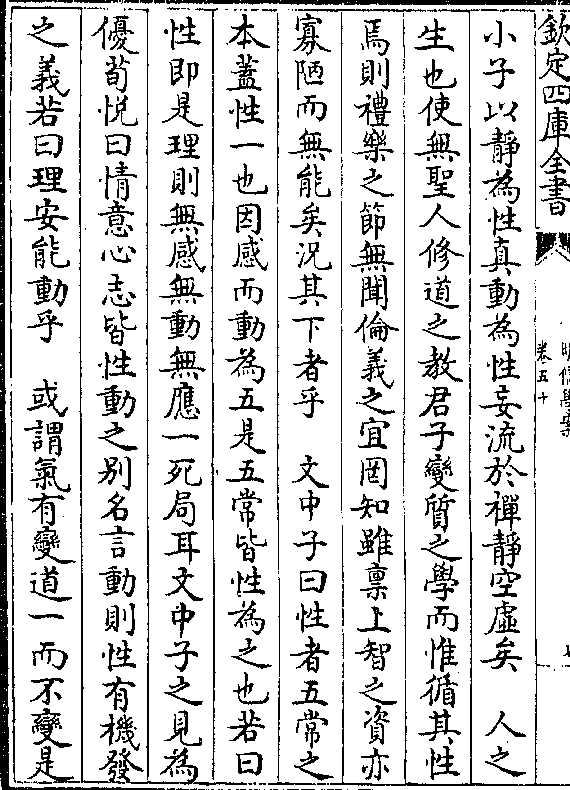 欽定四庫全書
明儒學案
卷五十
小子以靜為性真動為性妄流於禪靜空虛矣　人之
生也使無聖人修道之教君子變質之學而惟循其性
焉則禮樂之節無聞倫義之宜罔知雖稟上智之資亦
寡陋而無能矣況其下者乎　文中子曰性者五常之
本蓋性一也因感而動為五是五常皆性為之也若曰
性即是理則無感無動無應一死局耳文中子之見為
優荀悅曰情意心志皆性動之别名言動則性有機發
之義若曰理安能動乎　或謂氣有變道一而不變是